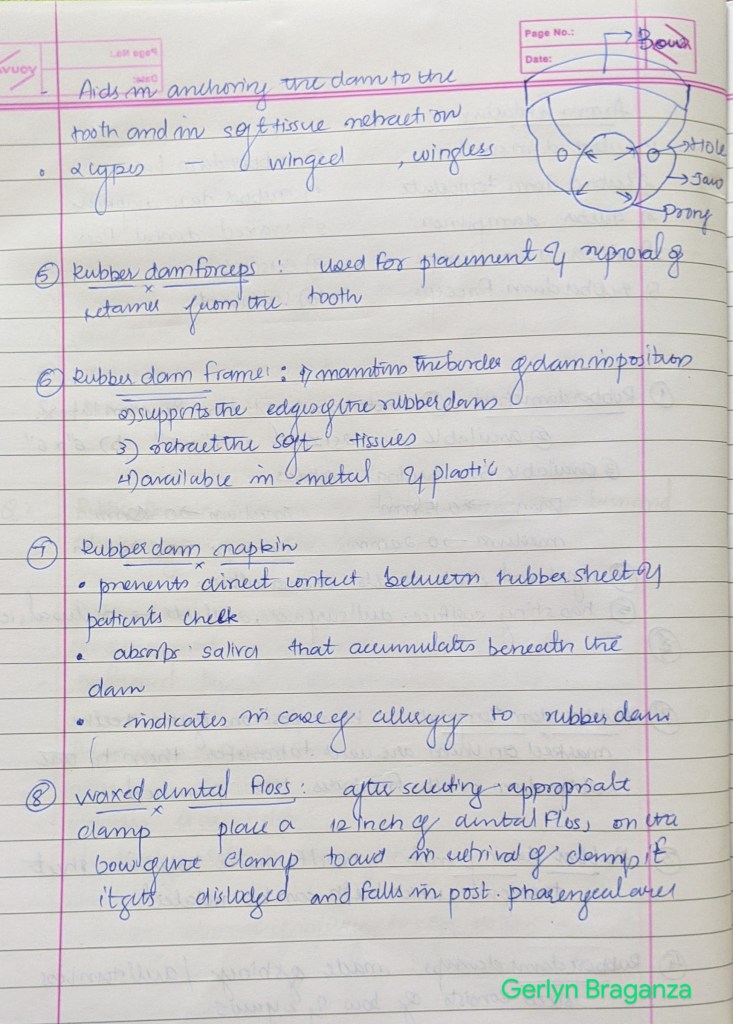 Page No.:
Date:
Bow
- Aids in anchoring the dam to the
tooth and in soft tissue retraction
• 2 types – winged , wingless
Hole
Jaw
Prong
⑤ Rubber dam forceps : used for placement & removal of
retainer from the tooth
⑥ Rubber dam frame : 1) maintins the border of dam in position
2) supports the edges of the rubber dam
3) retract the soft tissues
4) available in metal & plastic
⑦ Rubber dam napkin
• prevents direct contact between rubber sheet &
patients cheek
• absorbs saliva that accumulates beneath the
dam
• indicates in case of allergy to rubber dam
⑧ waxed dental floss : after selecting appropriate
clamp place a 12 inch of dental floss, on the
bow of the clamp to aid in retrival of clamp if
it gets dislodged and falls in post. pharengeal area
Gerlyn Braganza